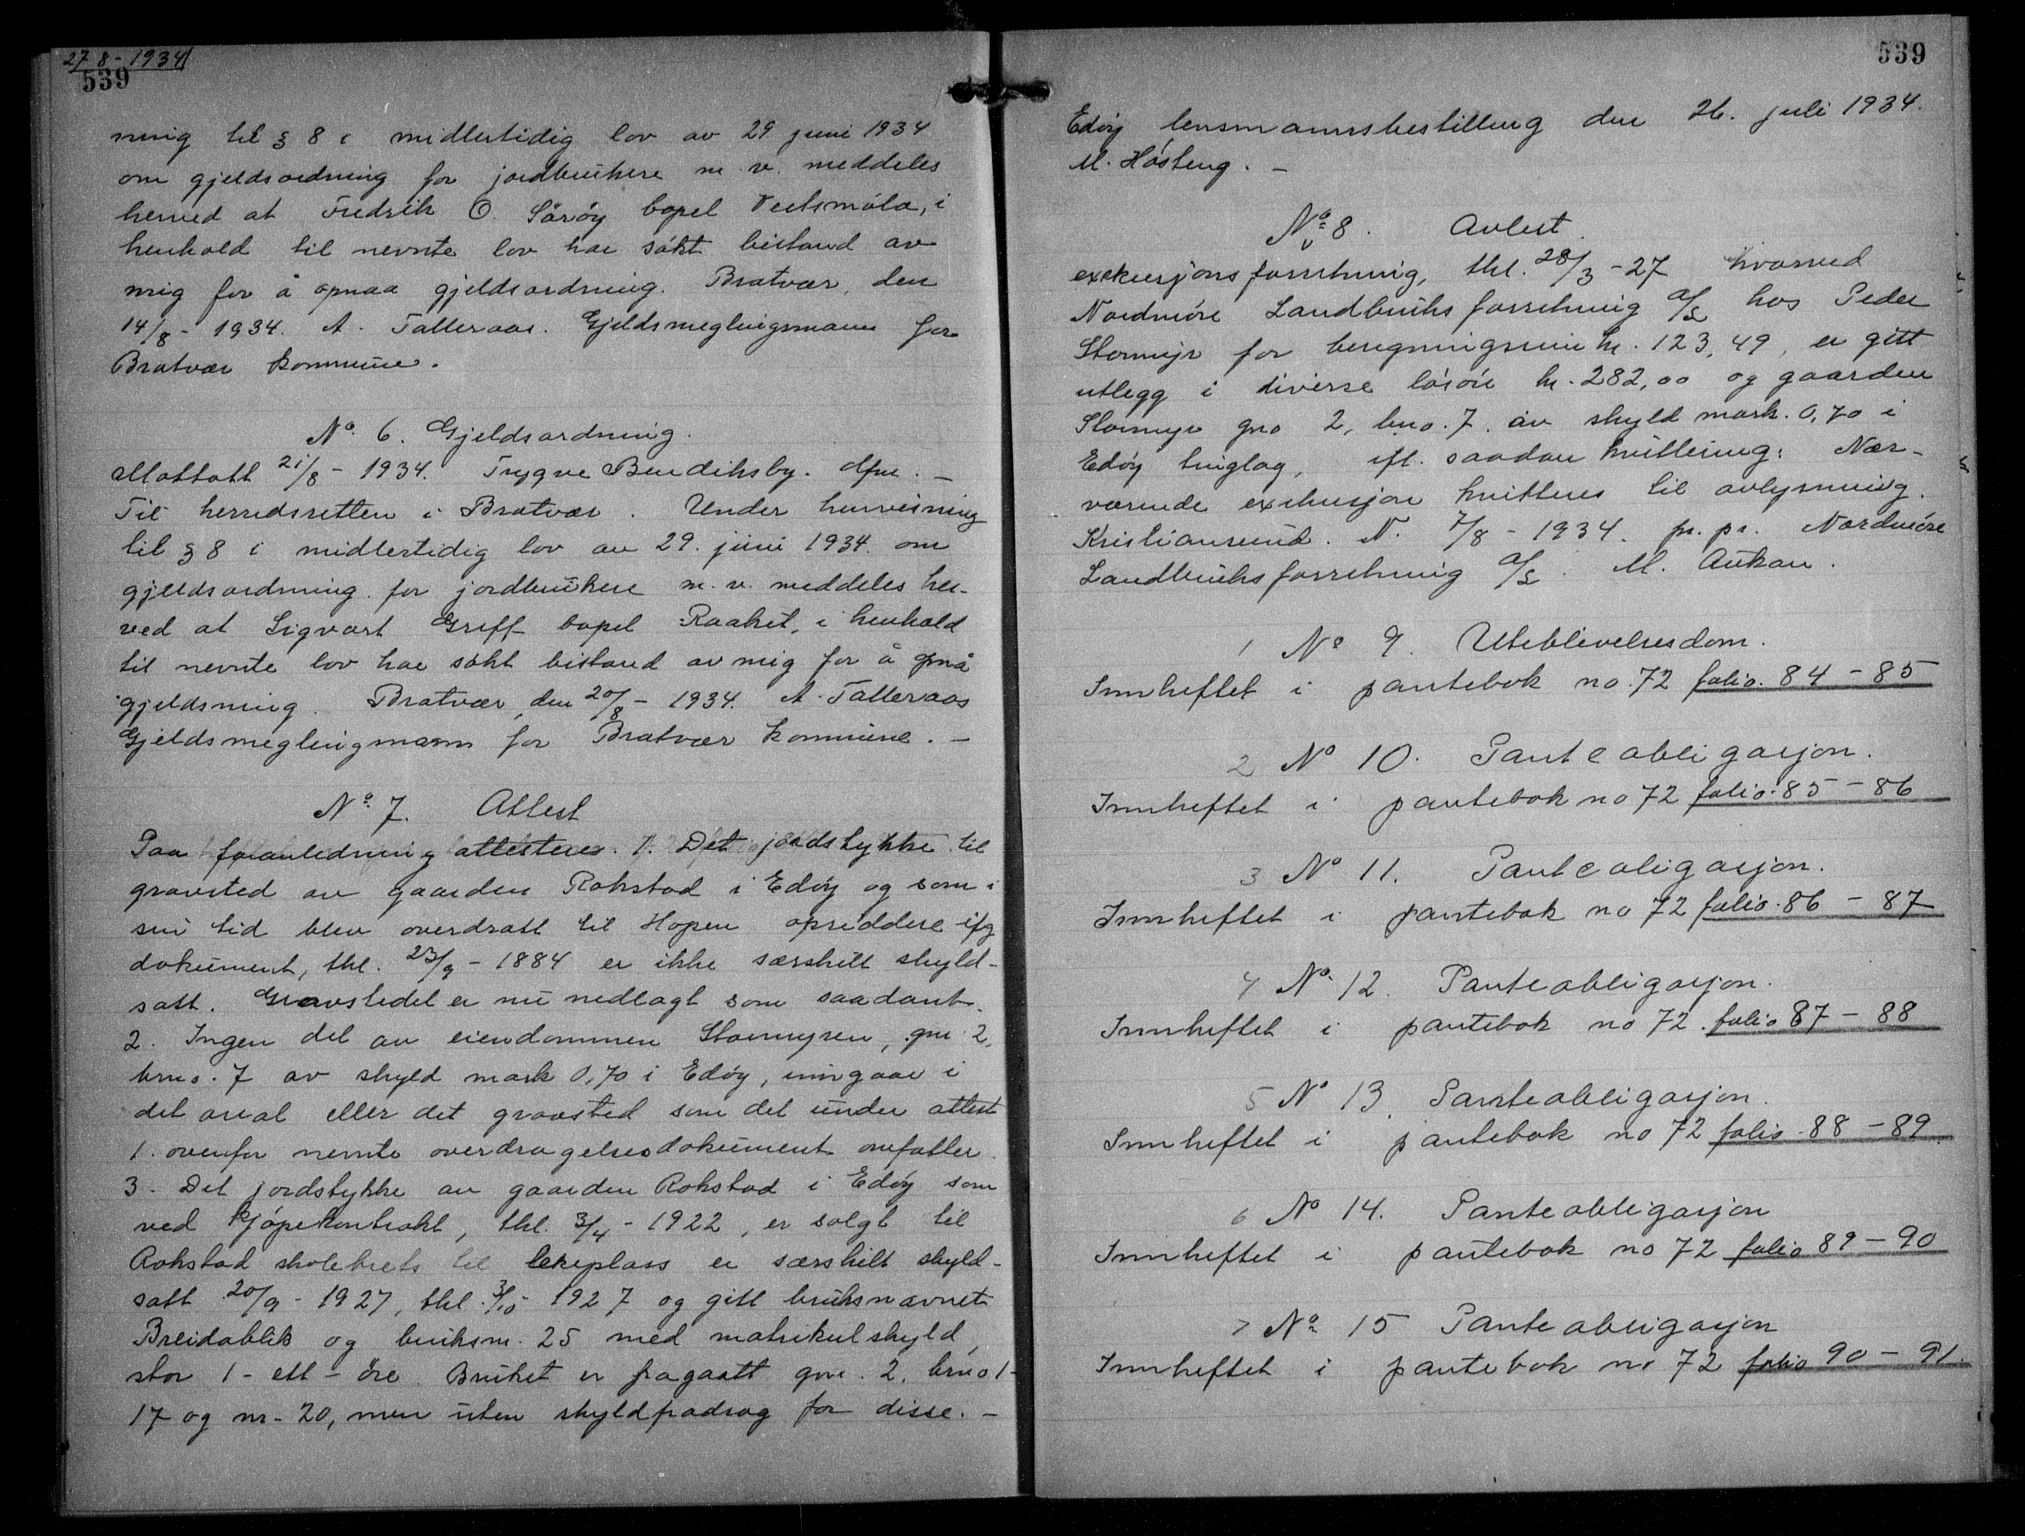 27 8 - 1934
539
ning til § 8 i midlertidig lov av 29 juni 1934
om gjeldsordning for jordbrukere m. v. meddeles
herved at Fredrik O. Sörøy bopel Veidsmåla, i
henhold til nevnte lov har søkt bistand av
mig for å opnaa gjeldsordning. Bratvær, den
14/8 - 1934. A. Talleraas. Gjeldsmeglingsmann for
Bratvær kommune.
No. 6. Gjeldsordning.
Mottatt 21/8 - 1934. Trygve Bendiksby. dfm. -
Til herredsretten i Bratvær. Under henvisning
til § 8 i midlertidig lov av 29. juni 1934. om
gjeldsordning for jordbrukere m. v. meddeles her-
ved at Sigvart Greff bopel Raaket, i henhold
til nevnte lov har søkt bistand av mig for å opnå
gjeldsning. Bratvær, den 20/8 - 1934. A. Talleraas
Gjeldsmeglingmann for Bratvær kommune. -
No. 7. Attest
Paa foranledning attesteres. 1. Det jordstykke til
gravsted av gaarden Rokstad i Edøy og som i
sin tid blev overdratt til Hopen opsiddere ifg
dokument, thl. 23/9 - 1884 er ikke særskilt skyld-
satt. Gravstedet er nu nedlagt som saadant.
2. Ingen del av eiendommen Stormyren, gnr. 2,
brno. 7 av skyld mark 0,70 i Edøy, inngaar i
det areal eller det gravsted som det under attest
1. ovenfor nevnte overdragelsesdokument omfatter.
3. Det jordstykke av gaarden Rokstad i Edøy som
ved kjøpekontrakt, thl. 3/4 - 1922, er solgt til
Rokstad skolekrets til lekeplass er særskilt skyld-
satt 20/9 - 1927, thl. 3/10 1927 og gitt bruksnavnet
Breidablik og bruksnr. 25 med matrikulskyld
stor 1 - ett - öre. Bruket er fragaatt gnr. 2. brno 1-
17 og nr - 20, men uten skyldfradrag for disse. -
539
Edøy lensmannsbestilling den 26. juli 1934.
M. Hösteng. -
No. 8. Avlest.
exekusjonsforretning, thl. 28/3 - 27 hvorved
Nordmöre Landbruksforretning a/s hos Peder
Stormyr for beregningsvis kr. 123,49, er gitt
utlegg i diverse løsøre kr. 282,00 og gaarden
Stormyr gno 2, bno. 7. av skyld mark. 0,70 i
Edøy tinglag, ifl. saadan kvittering: Nær-
værende exekusjon kvitteres til avlysning.
Kristiansund. N. 7/8 - 1934. pr. pr. Nordmöre
Landbruksforretning a/s. M. Aukan.
1 No 9. Uteblivelsesdom.
Innheftet i pantebok no. 72 folio. 84 - 85
2 No 10. Panteobligasjon.
Innheftet i pantebok no 72 folio. 85 - 86
3 No 11. Panteoligasjon.
Innheftet i pantebok no 72 folio. 86 - 87
4 No. 12. Panteobligasjon.
Innheftet i pantebok no 72. folio 87 - 88
5 No 13. Panteobligasjon.
Innheftet i pantebok no 72 folio. 88 - 89.
6 No 14. Panteobligasjon
Innheftet i pantebok no 72 folio 89 - 90
7 No 15 Panteobligasjon
Innheftet i pantebok no 72 folio 90 - 91.